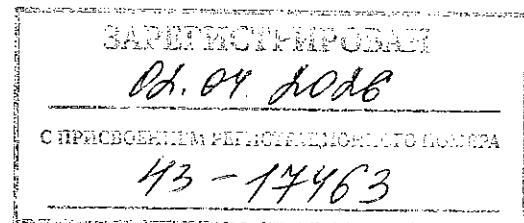 ЗАРЕГИСТРИРОВАН
02.04.2026
С ПРИСВОЕНИЕМ РЕГИСТРАЦИОННОГО НОМЕРА
43-17463